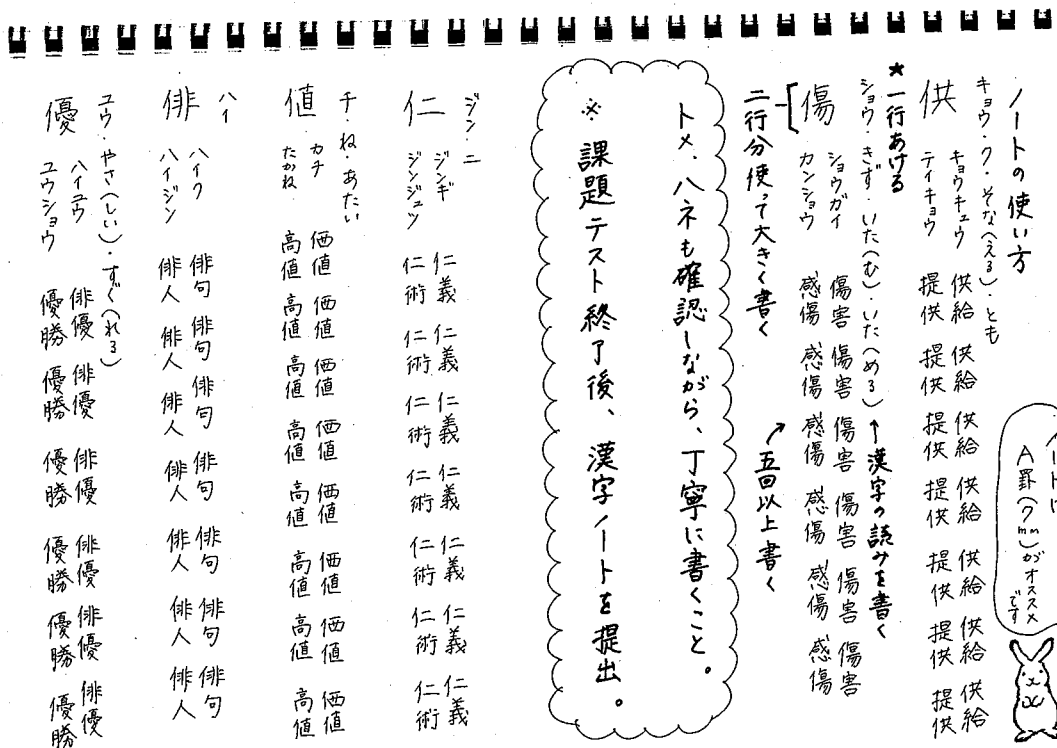 ノートの使い方
ノートは
A罫(7mm)がオススメ
です
キョウ・ク・そな(える)・とも
供
キョウキュウ 供給 供給 供給 供給 供給 供給 供給
テイキョウ 提供 提供 提供 提供 提供 提供 提供
★一行あける
ショウ・きず・いた(む)・いた(める) ↑漢字の読みを書く
傷
ショウガイ 傷害 傷害 傷害 傷害 傷害 傷害
カンショウ 感傷 感傷 感傷 感傷 感傷 感傷
二行分使って大きく書く
↗五回以上書く
トメ、ハネも確認しながら、丁寧に書くこと。
※ 課題テスト終了後、漢字ノートを提出。
ジン・ニ
仁
ジンギ 仁義 仁義 仁義 仁義 仁義 仁義 仁義
ジンジュツ 仁術 仁術 仁術 仁術 仁術 仁術 仁術
チ・ね・あたい
値
カチ 価値 価値 価値 価値 価値 価値 価値 価値
たかね 高値 高値 高値 高値 高値 高値 高値 高値
ハイ
俳
ハイク 俳句 俳句 俳句 俳句 俳句 俳句 俳句
ハイジン 俳人 俳人 俳人 俳人 俳人 俳人 俳人
ユウ・やさ(しい)・すぐ(れる)
優
ハイユウ 俳優 俳優 俳優 俳優 俳優 俳優
ユウショウ 優勝 優勝 優勝 優勝 優勝 優勝